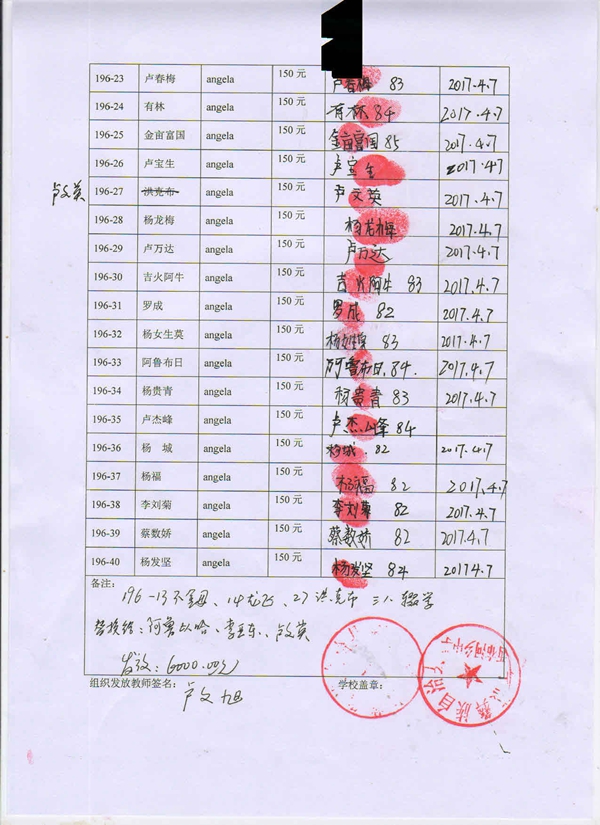 196-23 卢春梅 angela 150 元 卢春梅 83 2017.4.7
196-24 有林 angela 150 元 有林 84 2017.4.7
196-25 金亩富国 angela 150 元 金亩富国 85 2017.4.7
196-26 卢宝生 angela 150 元 卢宝生 2017.4.7
卢文英 196-27 洪克布 angela 150 元 卢文英 2017.4.7
196-28 杨龙梅 angela 150 元 杨龙梅 2017.4.7
196-29 卢万达 angela 150 元 卢万达 2017.4.7
196-30 吉火阿牛 angela 150 元 吉火阿牛 83 2017.4.7
196-31 罗成 angela 150 元 罗成 82 2017.4.7
196-32 杨女生莫 angela 150 元 杨女生莫 83 2017.4.7
196-33 阿鲁布日 angela 150 元 阿鲁布日. 84. 2017.4.7
196-34 杨贵青 angela 150 元 杨贵青 83 2017.4.7
196-35 卢杰峰 angela 150 元 卢杰峰 84
196-36 杨 城 angela 150 元 杨城. 82 2017.4.7
196-37 杨福 angela 150 元 杨福 82 2017.4.7
196-38 李刘菊 angela 150 元 李刘菊 82 2017.4.7
196-39 蔡数娇 angela 150 元 蔡数娇 82 2017.4.7
196-40 杨发坚 angela 150 元 杨发坚 84 2017.4.7
备注:
196-13 、14 龙飞、27 洪克布 三人辍学
替换给: 、李 东、卢文英
发放: 6000.00元
组织发放教师签名: 卢文旭 学校盖章:
彝族自治